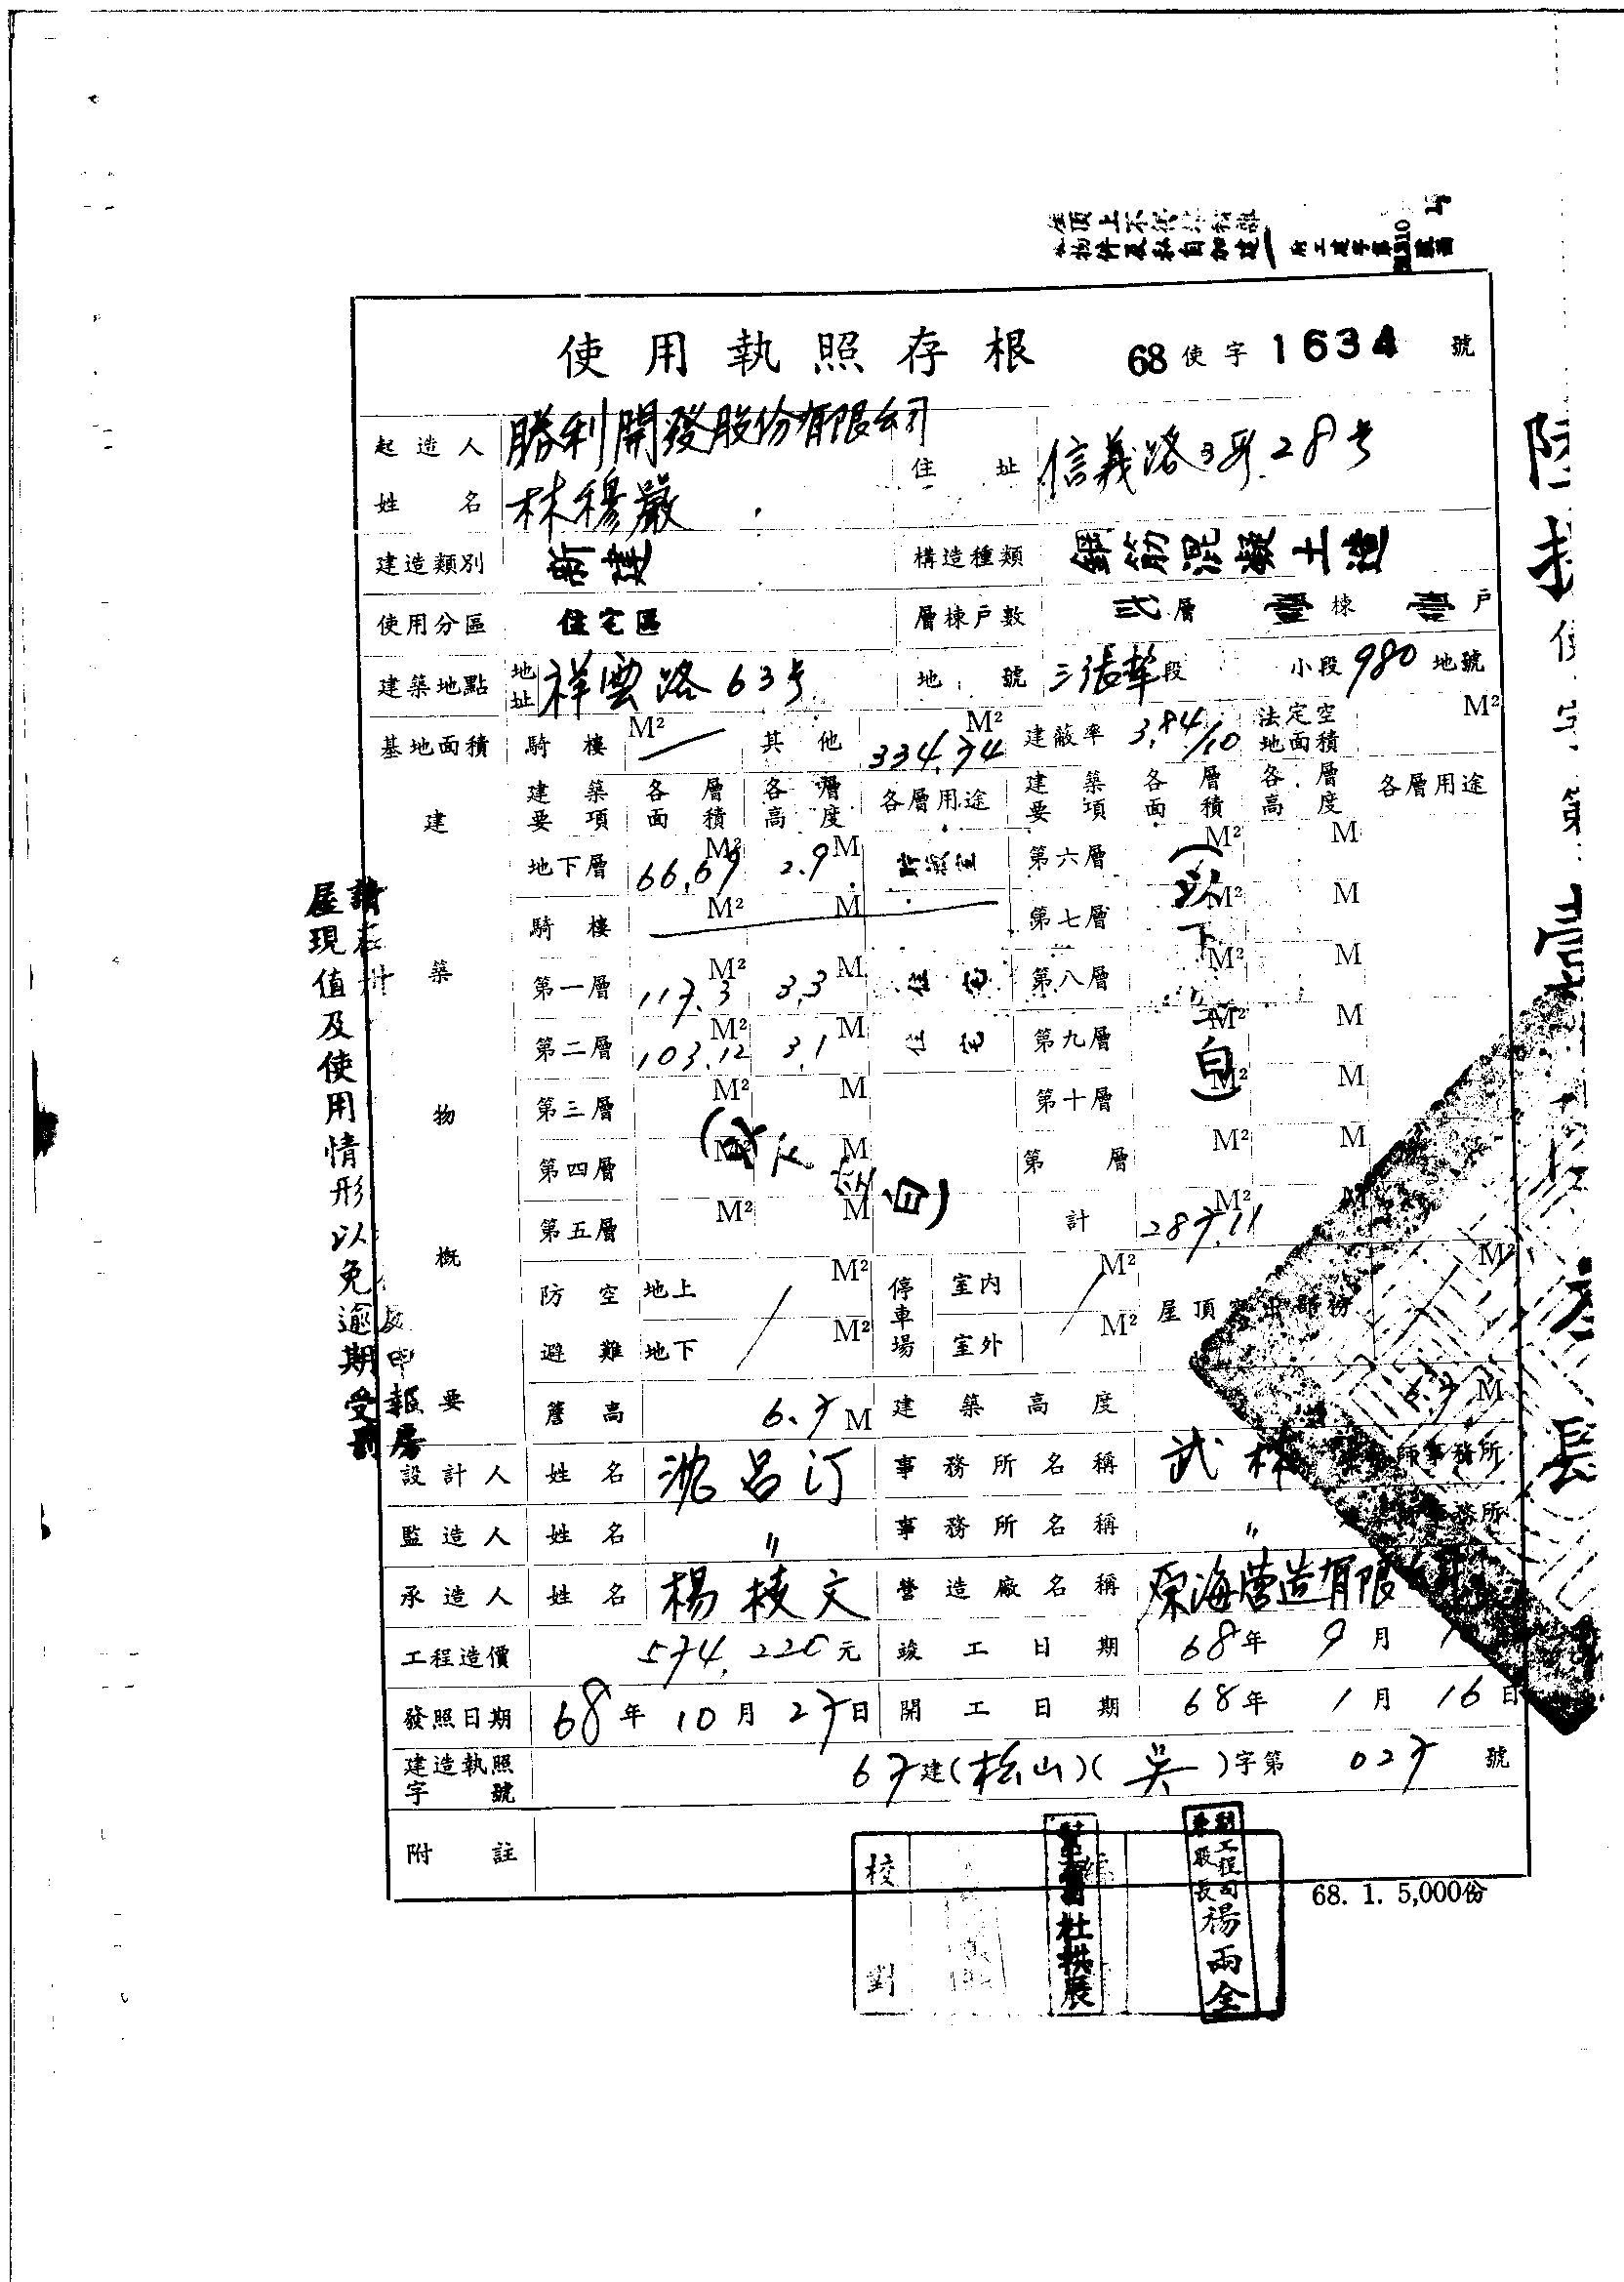 使用執照存根 68使字1634號
起造人姓名 勝利開發股份有限公司 林穆嚴 住址 信義路3段28号
建造類別 新建 構造種類 鋼筋混凝土造
使用分區 住宅區 層棟戶數 弍層 壹棟 壹戶
建築地點 地址 祥雲路63号 地號 三張犂段 小段980地號
基地面積 騎樓 M² 其他 334.74 M² 建蔽率 3.84/10 法定空地面積 M²
建築物概要
建築要項 各層面積 各層高度 各層用途 建築要項 各層面積 各層高度 各層用途
地下層 66.69 M² 2.9 M 第六層 M² M
騎樓 M² M 第七層 M² M
第一層 117.3 M² 3.3 M 住宅 第八層 M² M
第二層 103.12 M² 3.1 M 住宅 第九層 M² M
第三層 M² M 第十層 M² M
第四層 M² M 第 層 M² M
第五層 M² M 計 287.11 M² M
(以下空白)
(以下空白)
防空避難 地上 M² 地下 M² 停車場 室內 M² 室外 M² 屋頂突出部份 M²
簷高 6.7 M 建築高度 6.7 M
設計人 姓名 沈呂汀 事務所名稱 武林 師事務所
監造人 姓名 〃 事務所名稱 〃 事務所
承造人 姓名 楊 文 營造廠名稱 海營造有限
工程造價 574,220元 竣工日期 68年9月
發照日期 68年10月27日 開工日期 68年1月16日
建造執照字號 67建(松山)(吳)字第027號
附註
68. 1. 5,000份
校對
杜拱展
副工程司兼股長 楊兩全
屋現值及使用情形以免逾期受罰